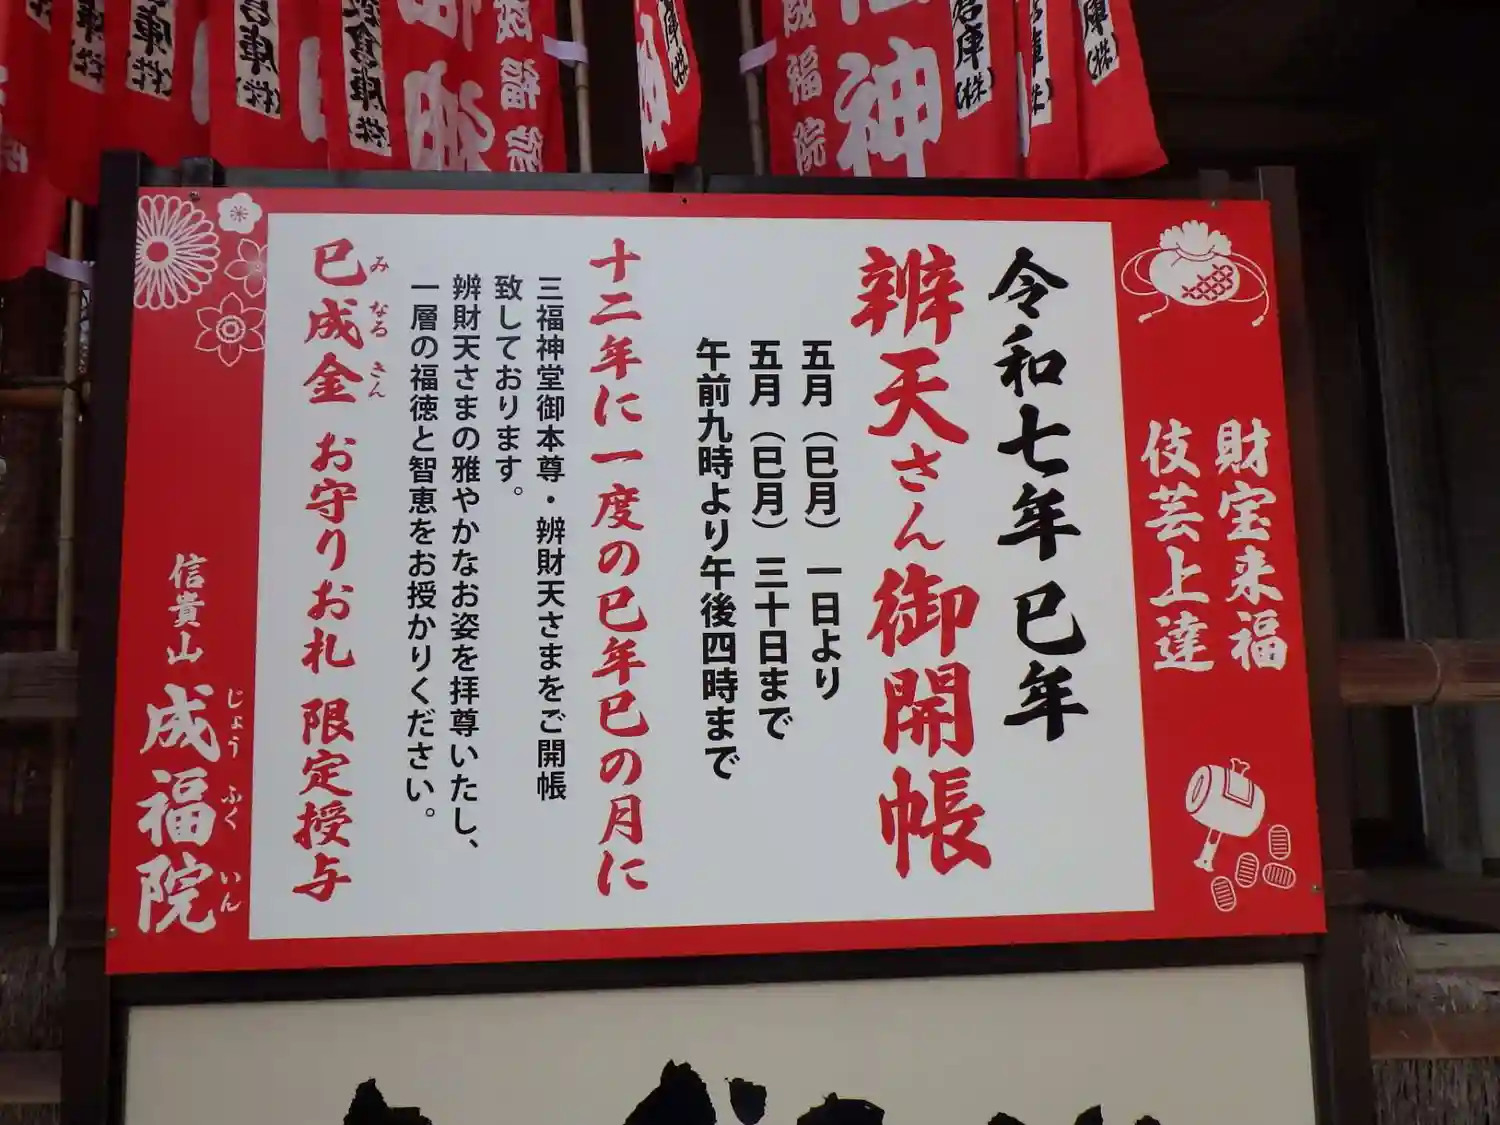 財宝来福
伎芸上達
令和七年 巳年
辨天さん御開帳
五月（巳月）一日より
五月（巳月）三十日まで
午前九時より午後四時まで
十二年に一度の巳年巳の月に
三福神堂御本尊・辨財天さまをご開帳
致しております。
辨財天さまの雅やかなお姿を拝尊いたし、
一層の福徳と智恵をお授かりください。
巳成金 お守りお札 限定授与
み なる きん
信貴山 成福院
じょう ふく いん
庫㈱
庫㈱
倉庫㈱
倉庫㈱
成福院
神
倉庫㈱
庫㈱
庫㈱